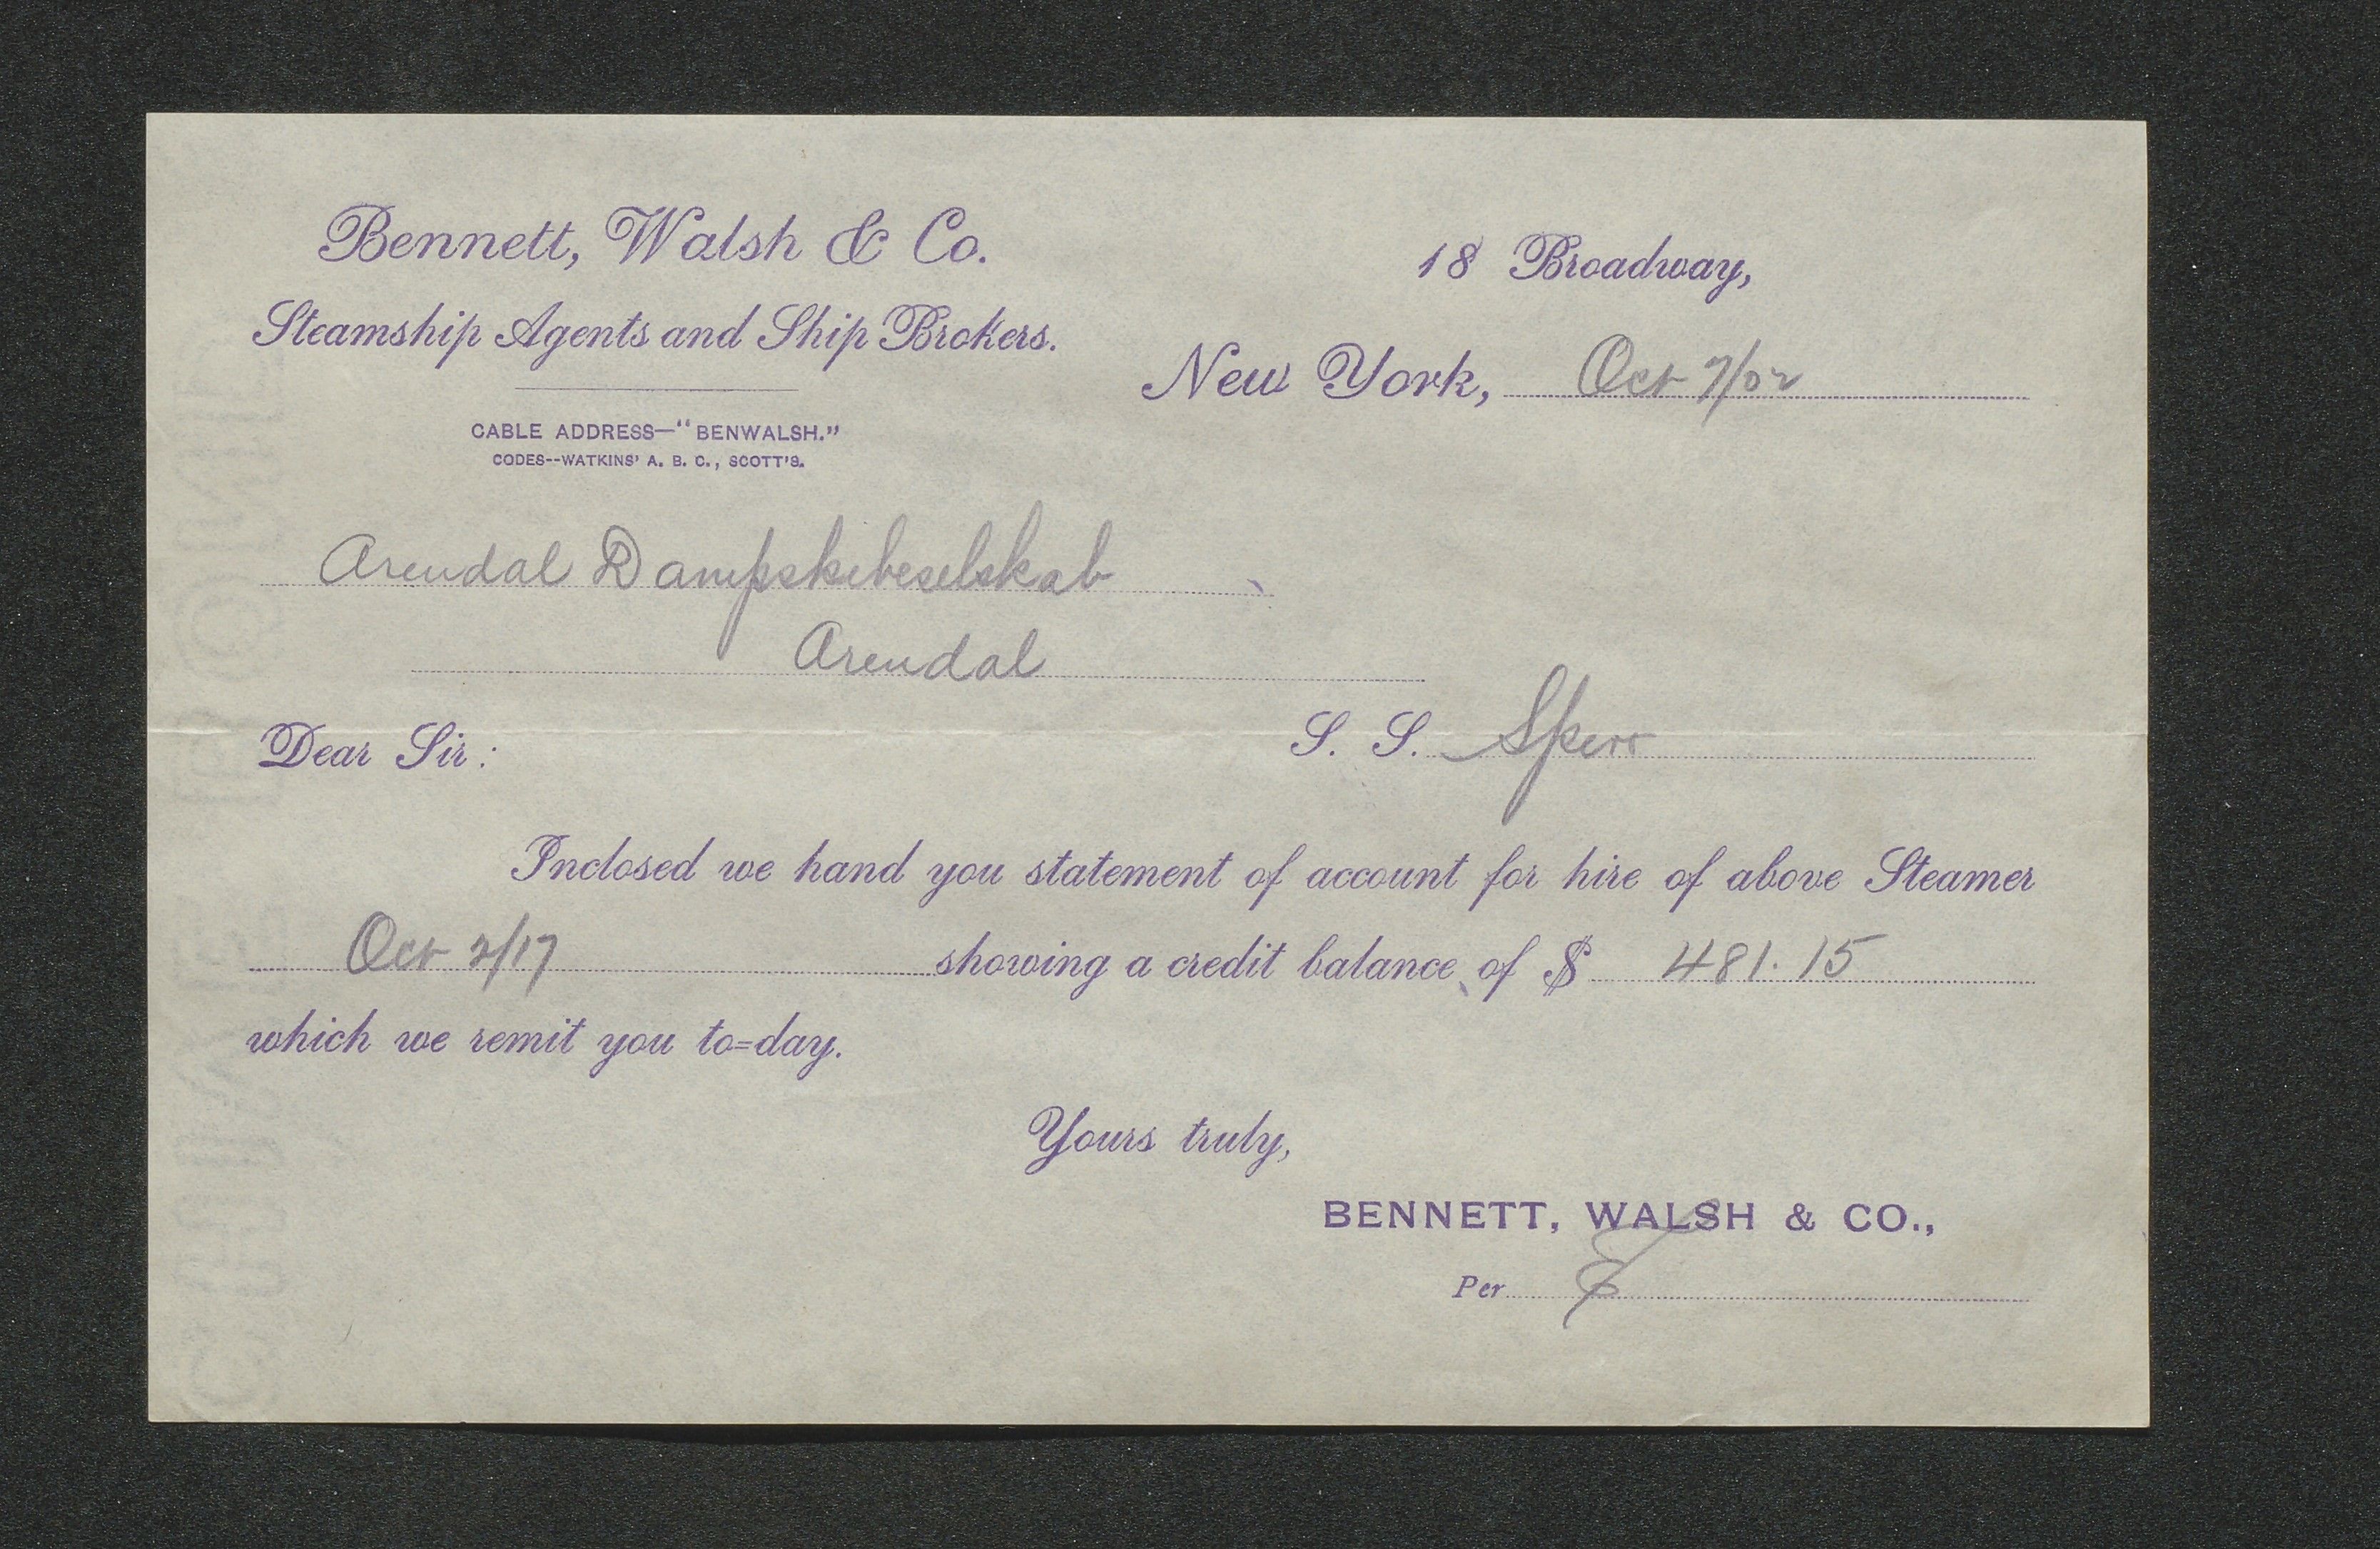 Bennett, Walsh & Co.
Steamship Agents and Ship Brokers.
CABLE ADDRESS—"BENWALSH."
CODES--WATKINS' A. B. C., SCOTT'S.
18 Broadway,
New York, Oct 7/02
Arendal Dampskibeselskab
Arendal
Dear Sir:
S. S.
Inclosed we hand you statement of account for hire of above Steamer
Oct 2/17 showing a credit balance of $ 481.15
which we remit you to=day.
Yours truly,
BENNETT, WALSH & CO.,
Per